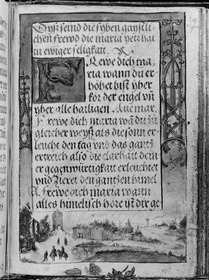 Dyß seind die syben gaystli
chen frewd die maria yetz hat
in ewiger seligkait.
Frewe dich ma
ria wann du er
höhet bist yber
kor der engel vñ
yber alle hailigen Aue mar
Frewe dich maria wañ du zu
gleicher weyß als die sonn er
leucht den tag vnd das gantz
ertreich also die clarhait dein
er gegenwürtigkait erleuchtet
vnd zieret den gantzen himel
Frewe dich maria wann
alles himelisch höre ist dir ge